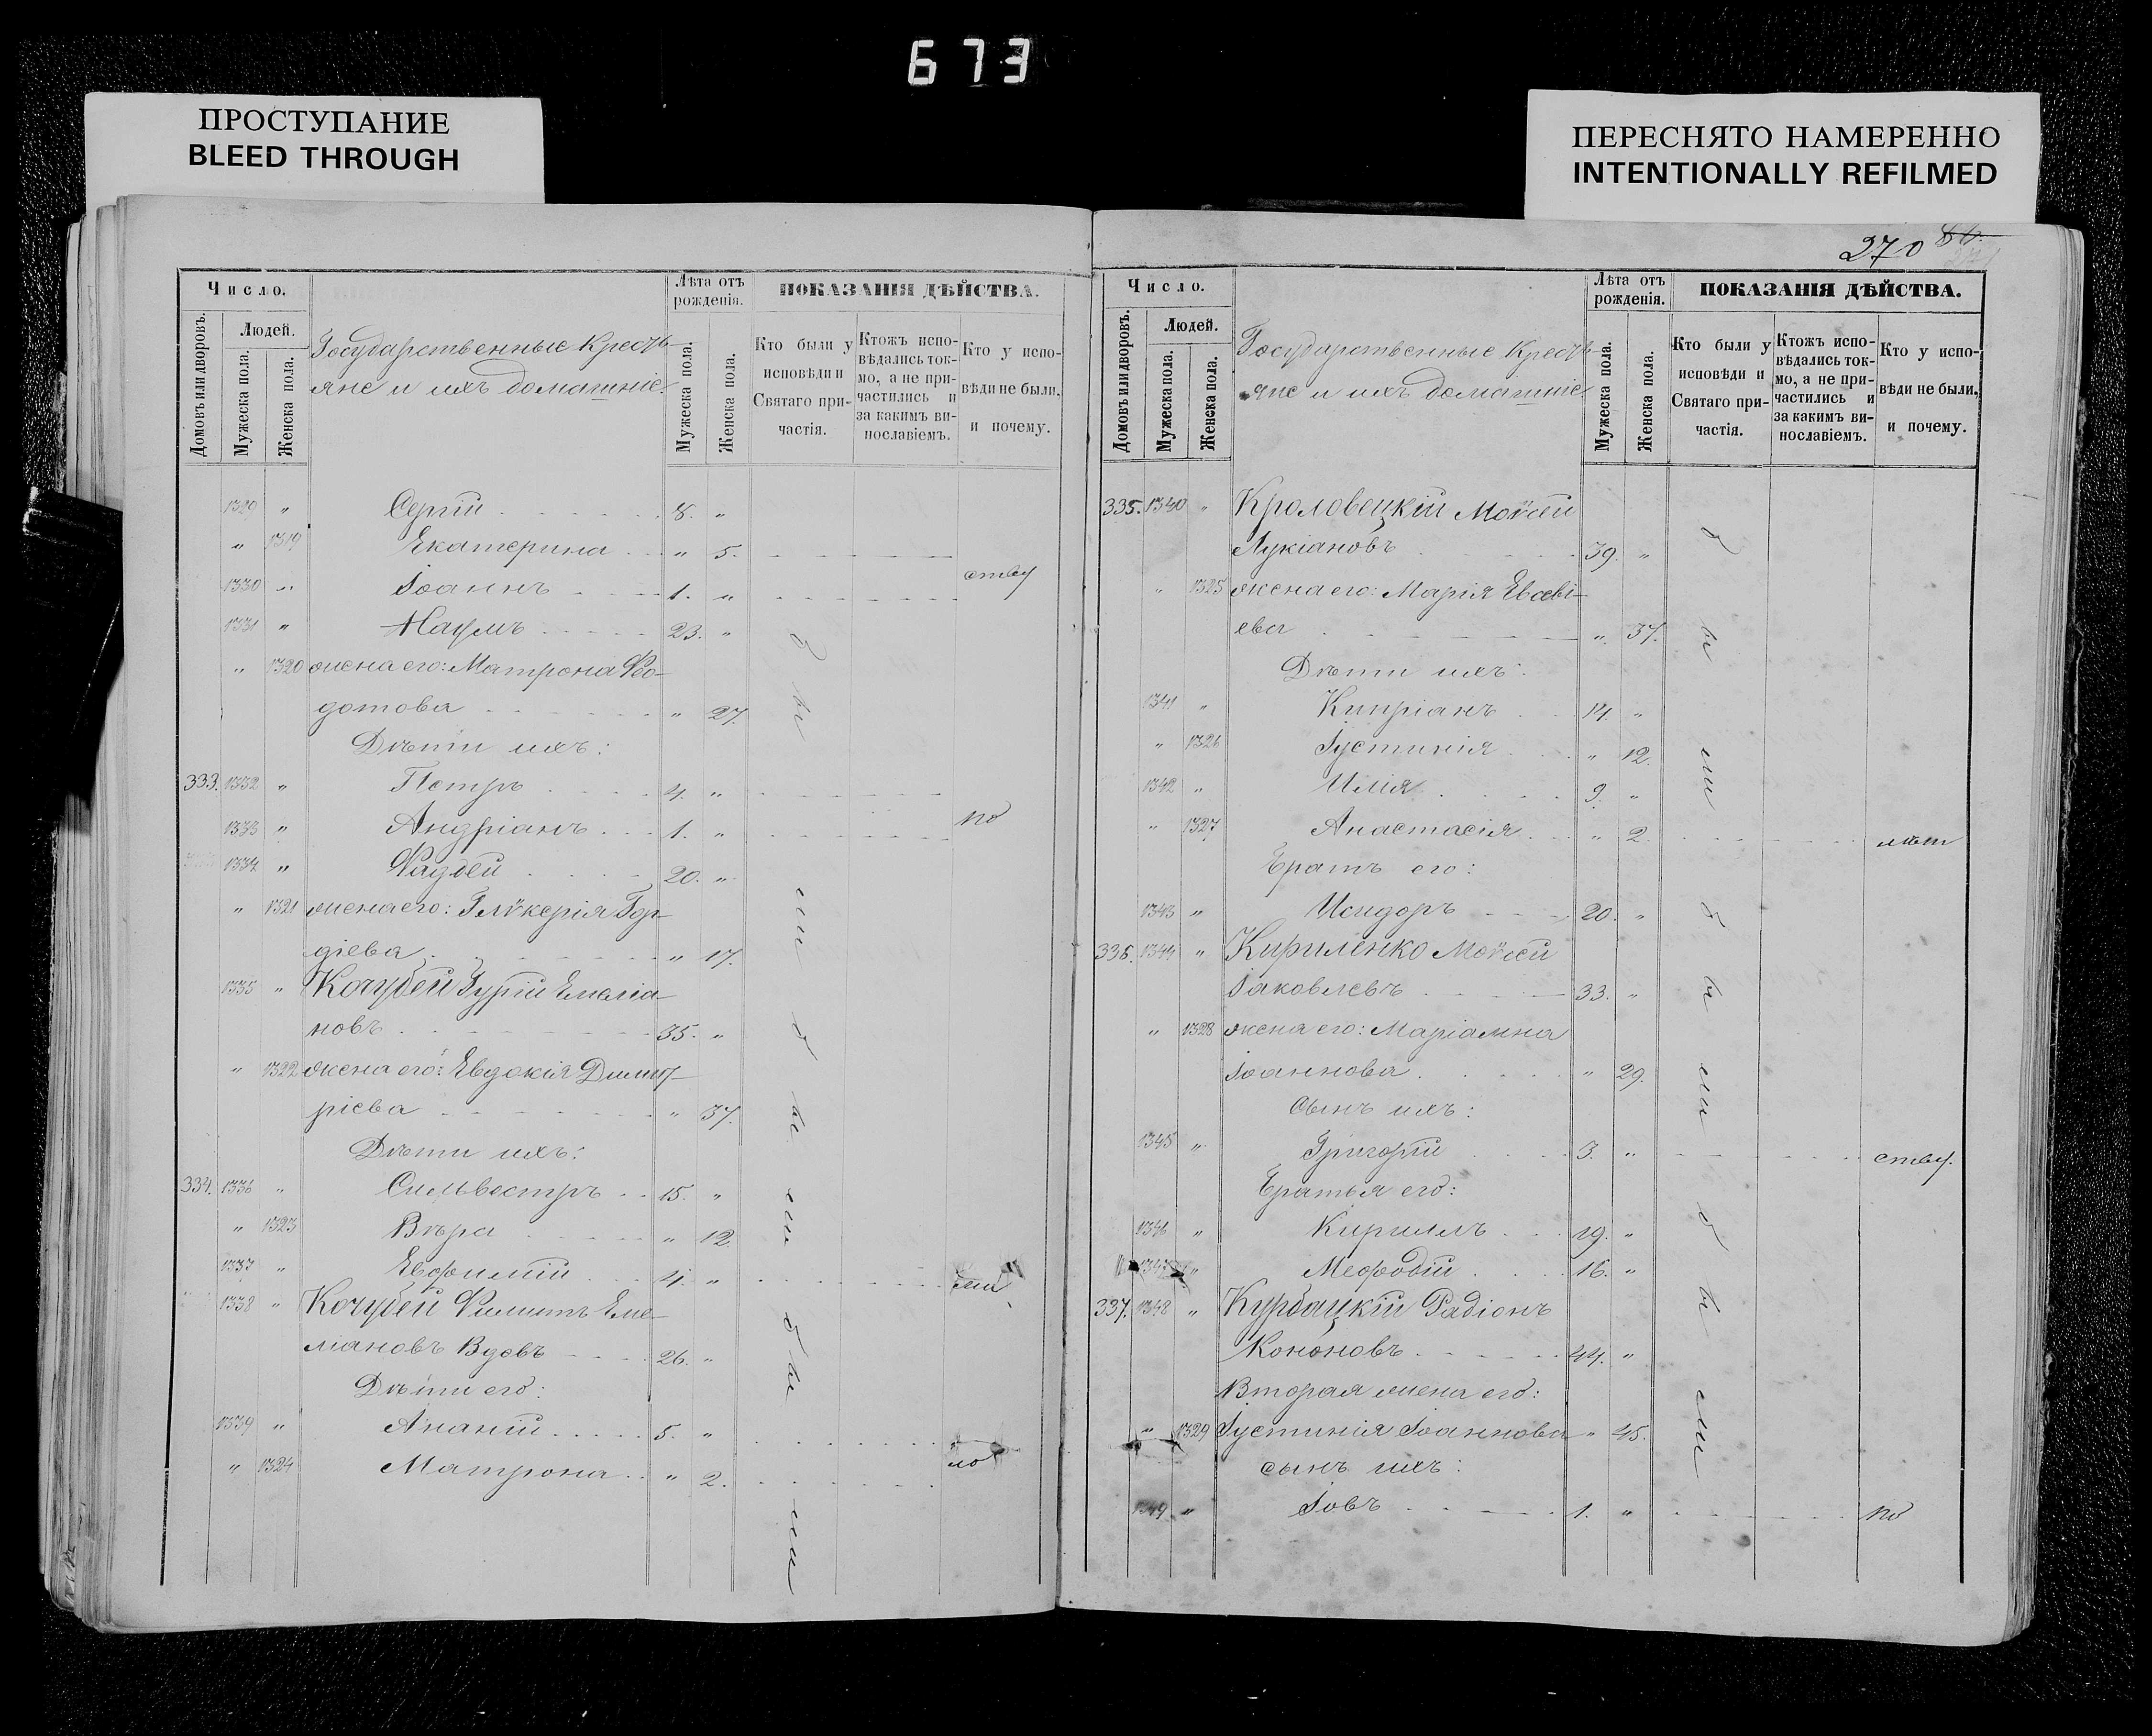 673
ПРОСТУПАНИЕ
BLEED THROUGH
ПЕРЕСНЯТО НАМЕРЕННО
INTENTIONALLY REFILMED
Число.
Домовъ или дворовъ.
Людей.
Мужеска пола.
Женска пола.
Государственные Кресть-
яне и ихъ домашніе.
Лѣта отъ рожденія.
Мужеска пола.
Женска пола.
ПОКАЗАНІЯ ДѢЙСТВА.
Кто были у исповѣди и Святаго причастія.
Ктожъ исповѣдались токмо, а не причастились и за какимъ винославіемъ.
Кто у исповѣди не были, и почему.
1329 " Сергій 8. "
" 1319 Екатерина " 5.
1330 " Іоаннъ 1. " ству
1331 " Наумъ 23. "
" 1320 жена его: Матрона Ѳео-
дотова " 27.
Дѣти ихъ:
333. 1332 " Петръ 4. "
1333 " Андріанъ 1. " по
1334 " Ѳаддей 20. "
" 1321 жена его: Глѵкерія Гор-
діева " 17.
1335 " Кочубей Гурій Емеліа-
новъ 35. "
" 1322 жена его: Евдокія Димит-
ріева " 37.
Дѣти ихъ:
334. 1336 " Сильвестръ 15. "
" 1323 Вѣра " 12.
1337 " Евфимій 4. "
1338 " Кочубей Филиппъ Еме-
ліановъ Вдовъ 26. "
Дѣти его:
1339 " Ананій 5. "
" 1324 Матрона " 2.
были были были
270
Число.
Домовъ или дворовъ.
Людей.
Мужеска пола.
Женска пола.
Государственные Кресть-
яне и ихъ домашніе.
Лѣта отъ рожденія.
Мужеска пола.
Женска пола.
ПОКАЗАНІЯ ДѢЙСТВА.
Кто были у исповѣди и Святаго причастія.
Ктожъ исповѣдались токмо, а не причастились и за какимъ винославіемъ.
Кто у исповѣди не были, и почему.
335. 1340 " Кроловецкій Моѵсей
Лукіановъ 39. "
" 1325 жена его: Марія Евсеві-
ева " 37.
Дѣти ихъ:
1341 " Кипріанъ 14. "
" 1326 Іустинія " 12.
1342 " Илія 9. "
" 1327 Анастасія " 2. мѣт
Братъ его:
1343 " Исидоръ 20. "
336. 1344 " Кириленко Моѵсей
Іаковлевъ 33. "
" 1328 жена его: Маріамна
Іоаннова " 29.
Сынъ ихъ:
1345 " Григорій 3. " ству.
Братья его:
1346 " Кириллъ 19. "
1347 " Меѳодій 16. "
337. 1348 " Курбацкій Радіонъ
Кононовъ 44. "
Вторая жена его:
" 1329 Іустинія Іоаннова " 45.
сынъ ихъ:
1349 " Іовъ 1. " по
были были были